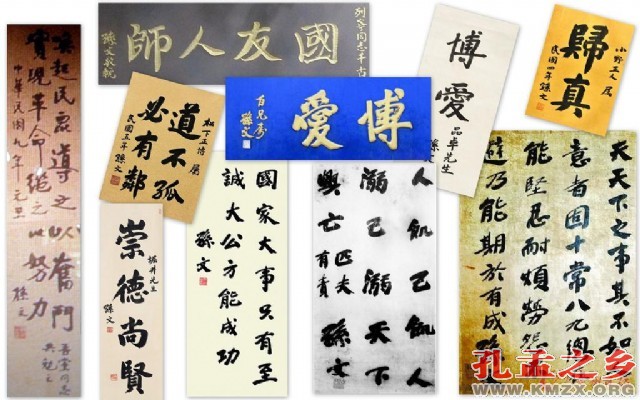 喚起民眾導之以奮鬥
實現革命繼之以努力
中華民國九年元旦
孫文
吾黨同志
共勉之
列寧同志千古
國友人師
孫文敬輓
屬
道不孤
必有鄰
民國五年 孫文
博愛
孫文
博愛
品卓先生
孫文
小野工人 屬
歸真
民國四年 孫文
堀井先生
崇德尚賢
孫文
國家大事只有至
誠大公方能成功
孫文
人飢己飢人
溺己溺天下
興亡匹夫有責
孫文
夫天下之事其不如
意者固十常八九總
能堅忍耐煩勞怨
避乃能期於有成
孔孟之乡
WWW.KMZX.ORG